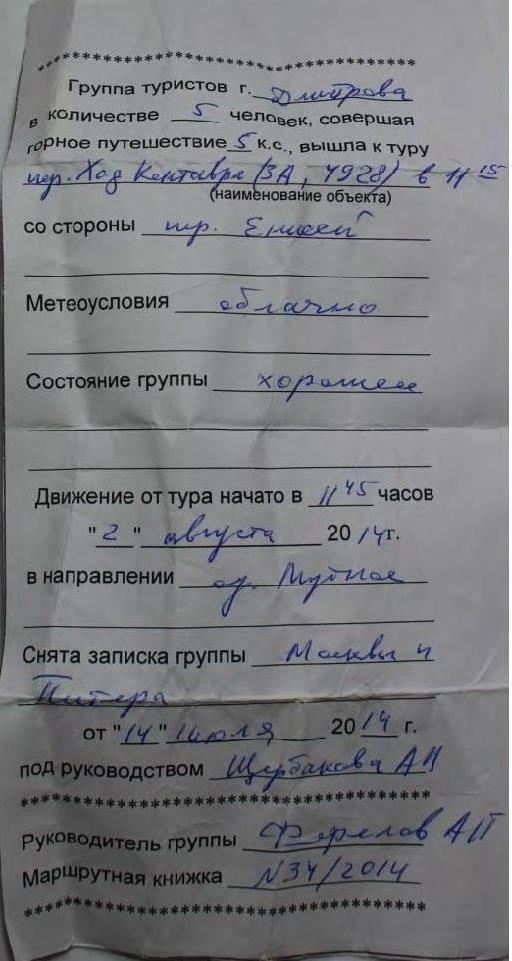 ************************************
Группа туристов г. Дмитрова
в количестве 5 человек, совершая
горное путешествие 5 к.с., вышла к туру
пер. Ход Кентавра (3А, 4928) в 11 15
(наименование объекта)
со стороны пер. Енисей
Метеоусловия облачно
Состояние группы хорошее
Движение от тура начато в 11 45 часов
"2" августа 2014г.
в направлении оз. Мутное
Снята записка группы Москвы и
Питера
от "14" июля 2014 г.
под руководством Щербакова АН
************************************
Руководитель группы АП
Маршрутная книжка N34/2014
************************************